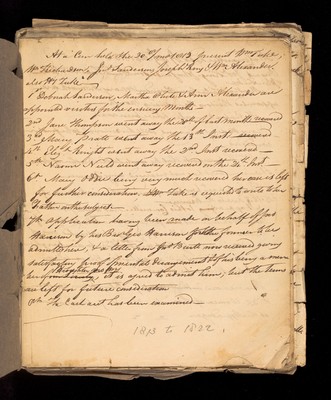 At a Com held the 30th of 1813 present Wm Tuke,
Wm Jnr Sanderson Joseph King & Wm Alexander
also Hy Tuke
1st Deborah Sanderson, Martha Tuke & Ann Alexander are
appointed visitors for the ensuing Month
2nd Jane Thompson went away the of last month recovered
3rd Mary Pratt went away the 13th Inst recovered
4th Wright went away the 2nd Inst recovered
5th Naomi went away recovered on the 20th Inst
6th Mary being very much recovered her case is left
for further consideration. Wm Tuke is requested to write to her
Father on the subject
7th Application having been made on behalf of Jos
Harrison by his Bror Geo Harrison for the former to be
admitted here, & a letter from now received giving
satisfactory proof of mental derangement & of his being a mem
ber it is agreed to admit him, but the terms
are left for future consideration
8th The Cash act has been examined
1813 to 1822,